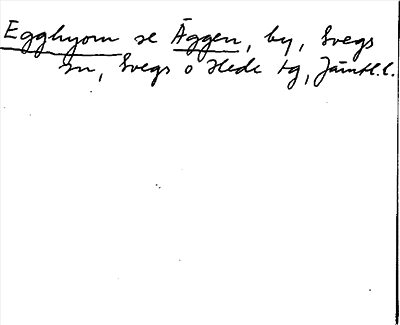 Egghyom se Äggen, by, Svegs
sn, Svegs o Hede tg, Jämtl. l.